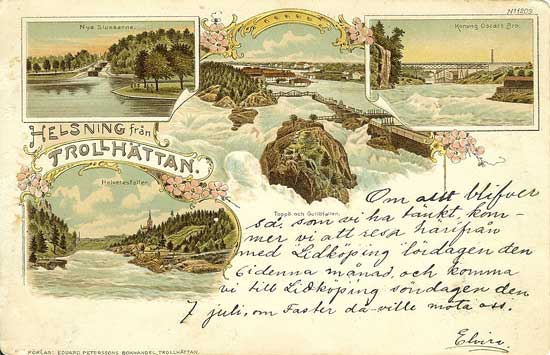 Nya Slussarne.
No 1209.
Konung Oscars Bro.
HELSNING från
TROLLHÄTTAN.
Helvetesfallen.
Toppö och Gullöfallen.
Om allt blifver
så, som vi ha tänkt, kom-
mer vi att resa härifrån
med Lidköping lördagen den
6 denna månad, och komma
vi till Lidköping söndagen den
7 juli, om Faster då ville möta oss.
Elvira.
FÖRLAG: EDUARD PETERSSONS BOKHANDEL, TROLLHÄTTAN.